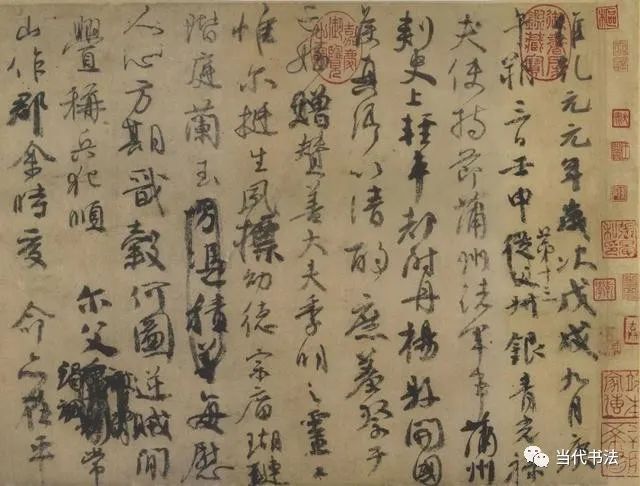 維乾元元年歲次戊戌九月庚
午朔三日壬申第十三從父叔銀青光祿
夫使持節蒲州諸軍事蒲州
刺史上輕車都尉丹楊縣開國
侯真卿以清酌庶羞祭于
亡姪贈贊善大夫季明之靈曰
惟爾挺生夙標幼德宗廟瑚璉
階庭蘭玉方憑積善每慰
人心方期戩穀何圖逆賊閒
釁稱兵犯順爾父竭誠常
山作郡余時受命亦在平
当代书法